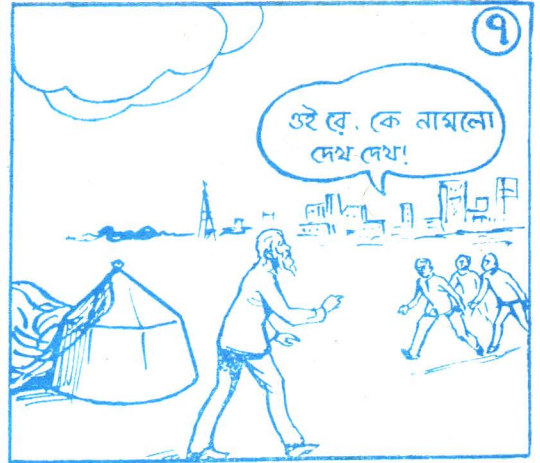 ৭
ওই রে, কে নামলো
দেখ দেখ!